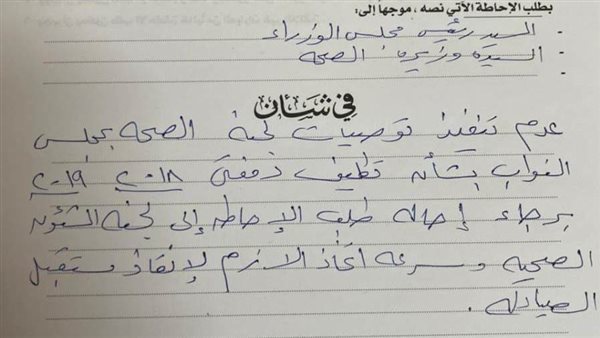 بطلب الإحاطة الآتي نصه ، موجهاً إلى:
- السيد رئيس مجلس الوزراء
- السيدة وزيرة الصحة
-
في شأن
عدم تنفيذ توصيات لجنة الصحه بمجلس
النواب بشأن تكليف دفعتى ٢٠١٨ ٢٠١٩
برجاء إحاله طلب الإحاطه إلى لجنه الشئون
الصحيه وسرعه اتخاذ الازم لإنقاذ مستقبل
الصيادله .